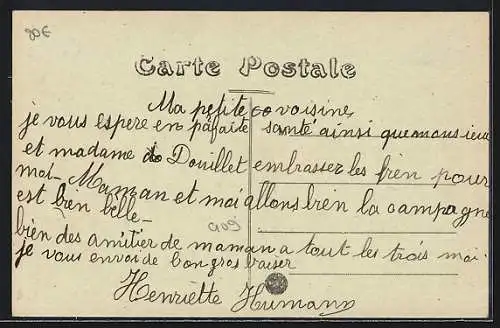 80€
Carte Postale
Ma petite voisine,
je vous espere en pafaite santé ainsi que monsieur
et madame Douillet embrasser les bien pour
moi - Maman et moi allons bien la campagne
est bien belle -
909
bien des amitier de maman a tout les trois moi
je vous envoi de bon gros baiser
Henriette Humann